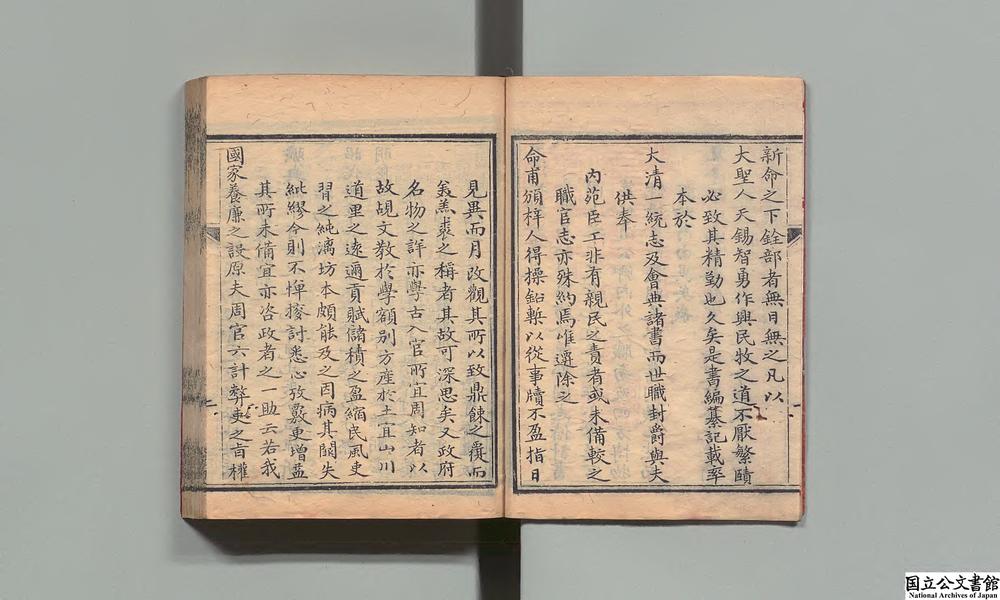 新命之下銓部者無日無之凡以
大聖人天錫智勇作興民牧之道不厭繁賾
必致其精勤也久矣是書編纂記載率
本於
大清一統志及會典諸書而世職封爵與夫
供奉
內苑臣工非有親民之責者或未備較之
職官志亦殊約焉唯遷除之
命甫頒梓人得操鉛槧以從事牘不盈指日
見異而月改觀其所以致鼎餗之覆而
羔裘之稱者其故可深思矣又政府
名物之詳亦學古入官所宜周知者以
故覘文教於學額別方產於土宜山川
道里之遠邇貢賦儲積之盈縮民風吏
習之純漓坊本頗能及之因病其闕失
紕繆今則不憚搜討悉心攷覈更增益
其所未備宜亦咨政者之一助云若我
國家養廉之設原夫周官六計弊吏之旨權
国立公文書館
National Archives of Japan